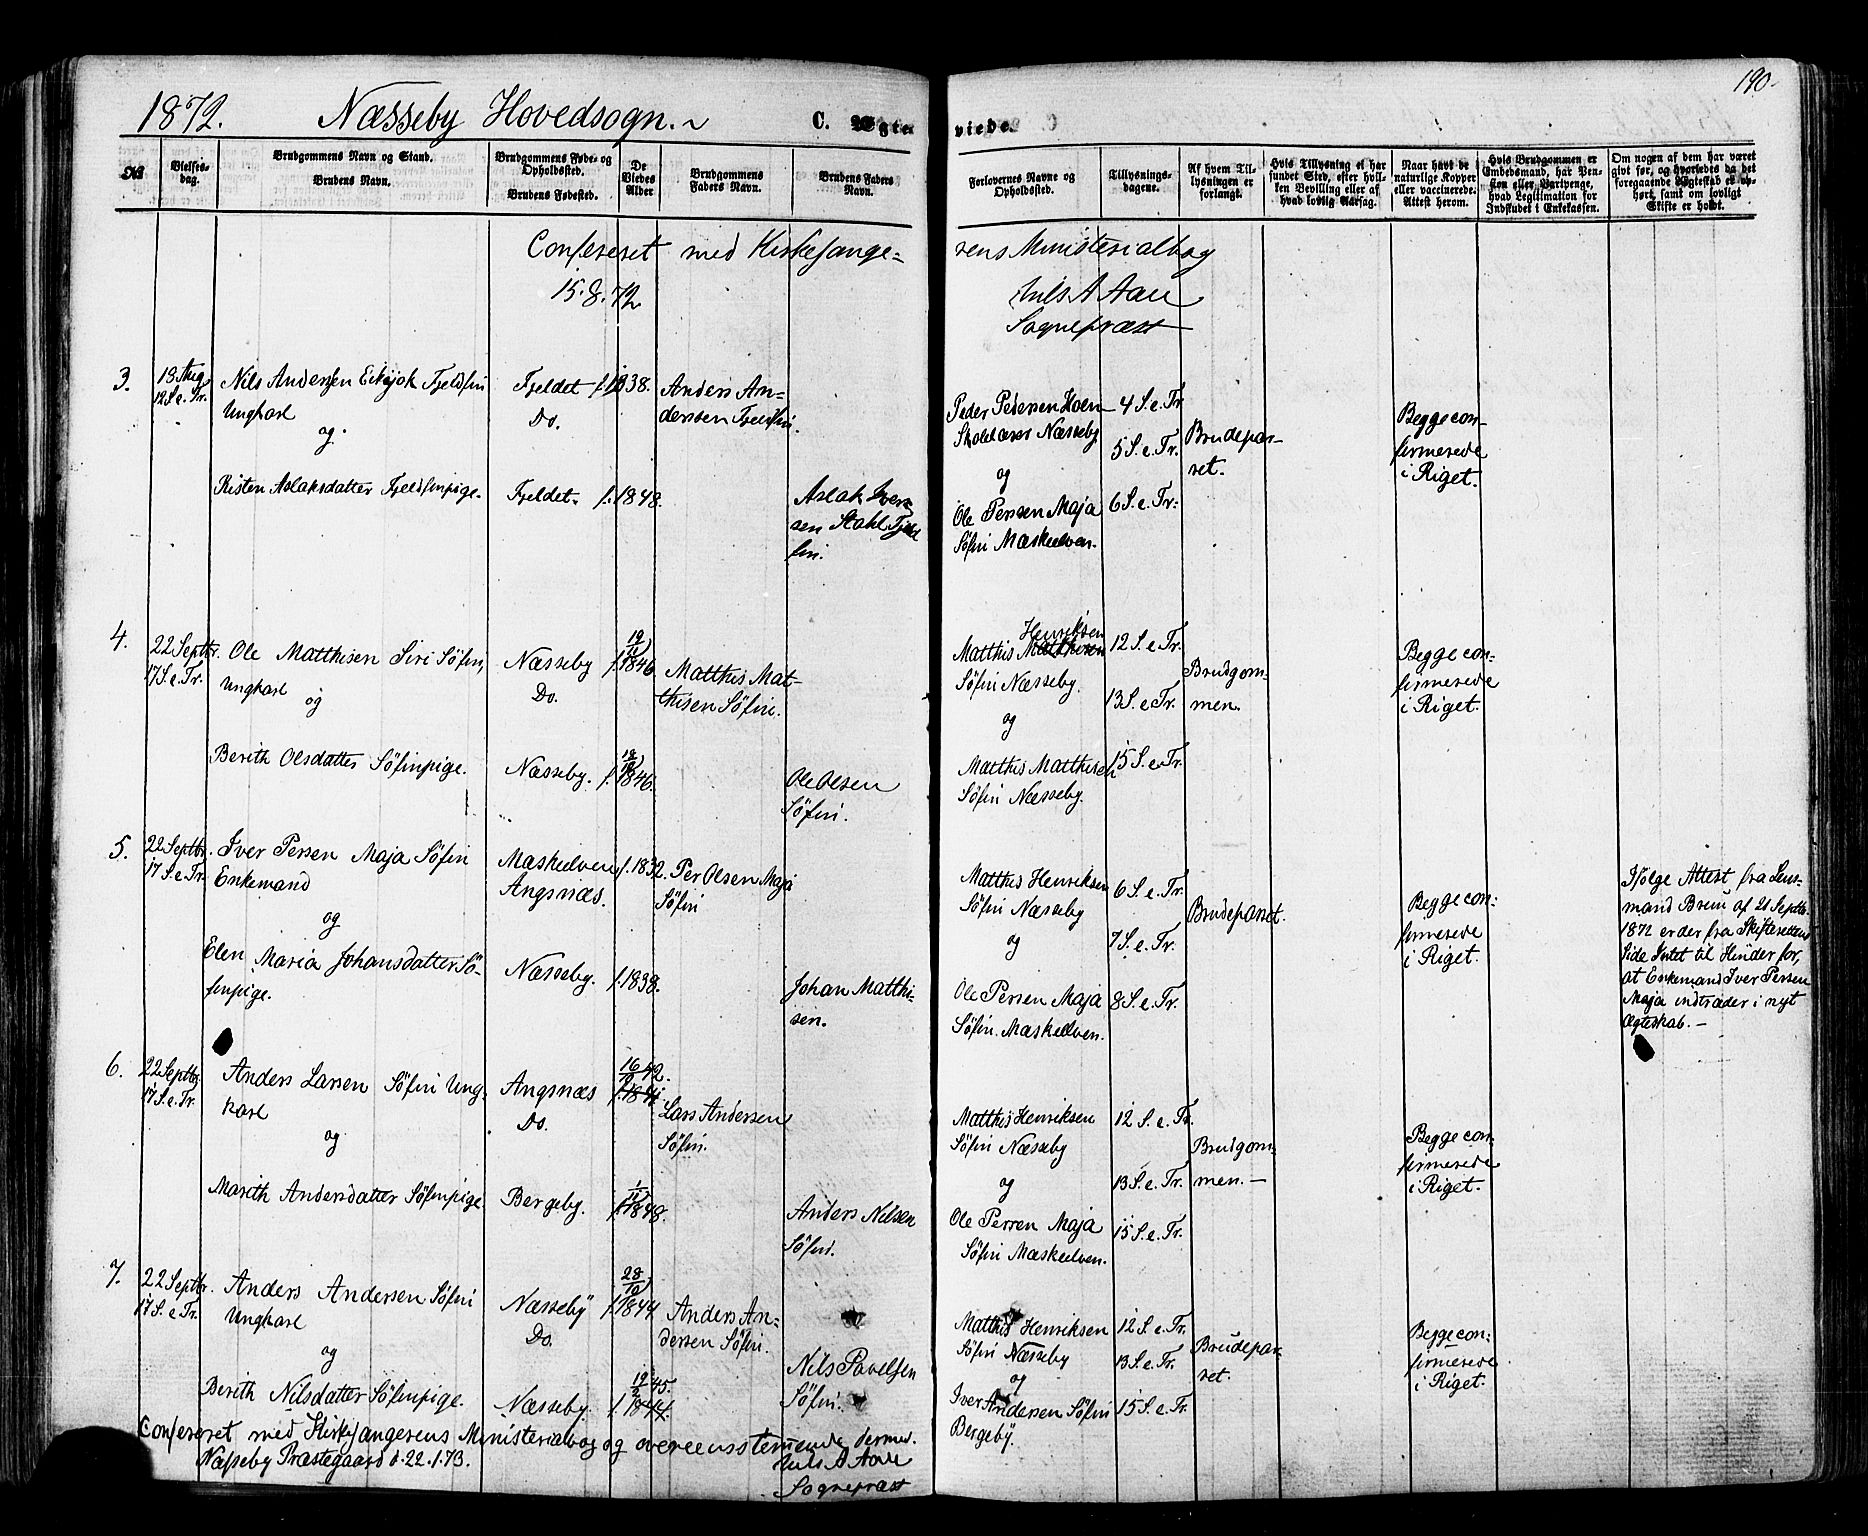 190.
1872. Næsseby Hovedsogn.
C. Ægteviede.
No
Vielses-
dag.
Brudgommens Navn og Stand.
Brudens Navn.
Brudgommens Føde- og
Opholdssted.
Brudens Fødested.
De
Viedes
Alder
Brudgommens
Faders Navn.
Brudens Faders
Navn.
Forlovernes Navne og
Opholdssted.
Tillysnings-
dagene.
Af hvem Til-
lysningen er
forlangt.
Hvis Tillysning ei har
fundet Sted, efter hvil-
ken Bevilling eller af
hvad lovlig Aarsag.
Naar havt de
naturlige Kopper
eller vaccinerede.
Attest herom.
Hvis Brudgommen er
Embedsmand, har Pen-
sion eller Vartpenge,
hvad Legitimation for
Indskudet i Enkekassen.
Om nogen af dem har været
givt før, og hvorledes da det
foregaaende Ægteskab er op-
hørt, samt om lovligt
Skifte er holdt.
Confereret med Kirkesange-
rens Ministerialbog
15.8.72
Nils A Aall
Sognepræst
3.
18 Aug
12 S. e. Tr.
Nils Andersen Eikjok Fjeldfin
Ungkarl
og
Risten Aslaksdatter Fjeldfinpige.
Fjeldet
Do.
Fjeldet.
f. 1838.
f. 1848.
Anders An-
dersen Fjeldfin.
Aslak Iver-
sen Stahl Fjeld
fin.
Peder Pedersen Hoem
Skolelærer Næsseby
og
Ole Persen Maja
Søfin Mæskelven.
4 S. e. Tr
5 S. e. Tr.
6 S. e. Tr.
Brudepar-
ret.
Begge con-
firmerede
i Riget.
4.
22 Septbr.
17 S. e. Tr.
Ole Matthisen Siri Søfin,
Ungkarl
og
Berith Olsdatter Søfinpige.
Næsseby
Do.
Næsseby.
f. 1846
f. 1846.
Matthis Mat-
thisen Søfin.
Ole Olsen
Søfin.
Henriksen
Matthis Matthisen
Søfin Næsseby.
og
Matthis Matthisen
Søfin Næsseby.
12 S. e. Tr.
13 S. e. Tr.
15 S. e. Tr.
Brudgom-
men.
Begge con-
firmerede
i Riget.
5.
22 Septbr.
17 S. e. Tr.
Iver Persen Maja Søfin
Enkemand
og
Elen Maria Johansdatter Sø-
finpige.
Mæskelven
Angsnæs.
Næsseby.
f. 1832.
f. 1838.
Per Olsen Maja
Søfin
Johan Matthi-
sen.
Matthis Henriksen
Søfin Næsseby
og
Ole Persen Maja
Søfin. Mæskelven.
6 S. e. Tr.
7 S. e. Tr.
8 S. e. Tr.
Brudeparret.
Begge con-
firmerede
i Riget.
Ifølge Attest fra Lens-
mand Bruu af 21 Septbr.
1872 er der fra Skifterettens
Side Intet til Hinder for,
at Enkemand Iver Persen
Maja indtræder i nyt
Ægteskab. —
6.
22 Septbr.
17 S. e. Tr.
Anders Larsen Søfin Ung-
karl
og
Marith Andersdatter Søfinpige
Angsnæs
Do.
Bergeby.
42.
f. 1841.
f. 1848.
Lars Andersen
Søfin.
Anders Nilsen
Søfin.
Matthis Henriksen
Søfin Næsseby
og
Ole Persen Maja
Søfin Mæskelven.
12 S. e. Tr.
13 S. e. Tr.
15 S. e. Tr.
Brudgom-
men. —
Begge con-
firmerede
i Riget.
7.
22 Septbr.
17 S. e. Tr.
Anders Andersen Søfin
Ungkarl
og
Berith Nilsdatter Søfinpige.
Næsseby
Do.
Næsseby.
28/10
f. 1844
19/2 45.
f. 1844.
Anders An-
dersen Søfin.
Nils Pavelsen
Søfin.
Matthis Henriksen
Søfin Næsseby
og
Iver Andersen Søfin
Bergeby.
12 S. e. Tr.
13 S. e. Tr.
15 S. e. Tr.
Brudepar-
ret.
Begge con-
firmerede
i Riget.
Confereret med Kirkesangerens Ministerialbog og overeensstemmende dermed.
Næsseby Præstegaard d. 22.1.73.
Nils A Aall
Sognepræst